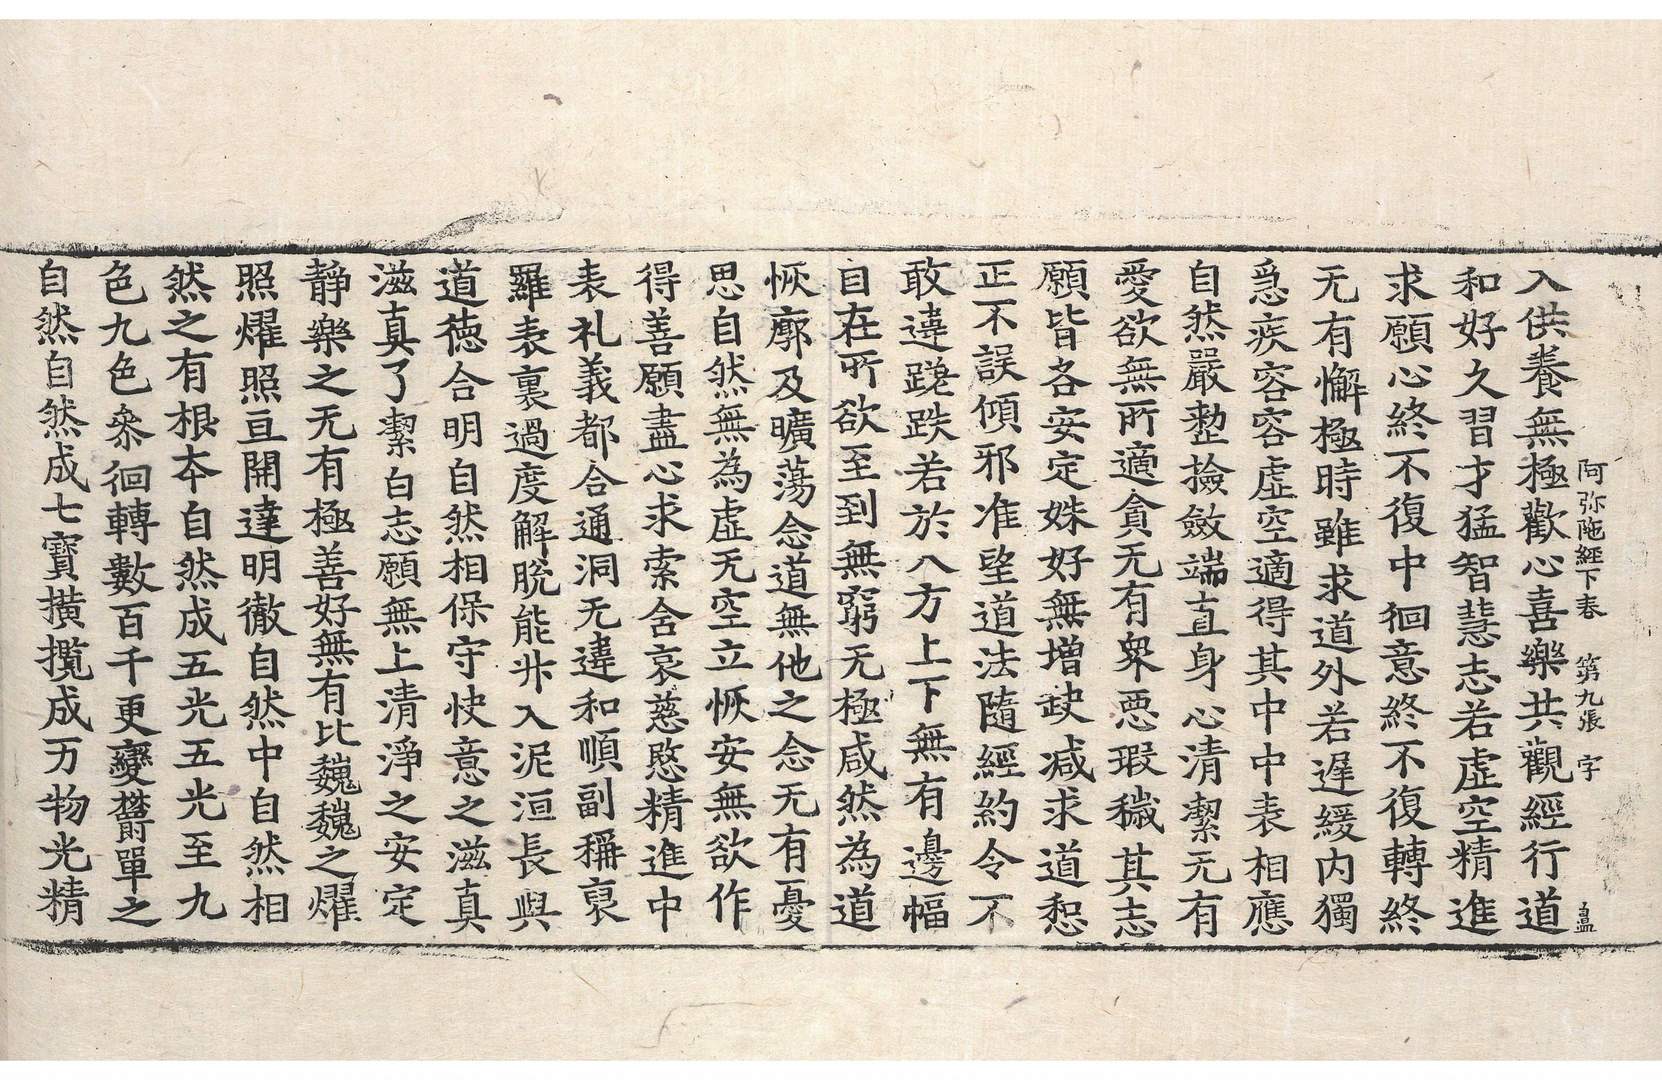 阿弥陁經下卷 第九張 字 皿
入供養無極歡心喜樂共觀經行道
和好久習才猛智慧志若虛空精進
求願心終不復中徊意終不復轉終
无有懈極時雖求道外若遲緩内獨
急疾容容虛空適得其中中表相應
自然嚴整撿斂端直身心清潔无有
愛欲無所適貪无有衆惡瑕穢其志
願皆各安定姝好無增缺减求道惒
正不誤傾邪准望道法隨經約令不
敢違蹉跌若於八方上下無有邊幅
自在所欲至到無窮无極咸然為道
恢廓及曠蕩念道無他之念无有憂
思自然無為虛无空立恢安無欲作
得善願盡心求索含哀慈愍精進中
表礼義都合通洞无違和順副稱裏
羅表裏過度解脫能升入泥洹長與
道徳合明自然相保守快意之滋真
滋真了潔白志願無上清淨之安定
靜樂之无有極善好無有比巍巍之燿
照燿照亘開達明徹自然中自然相
然之有根本自然成五光五光至九
色九色叅徊轉數百千更變欝單之
自然自然成七寶橫攬成万物光精